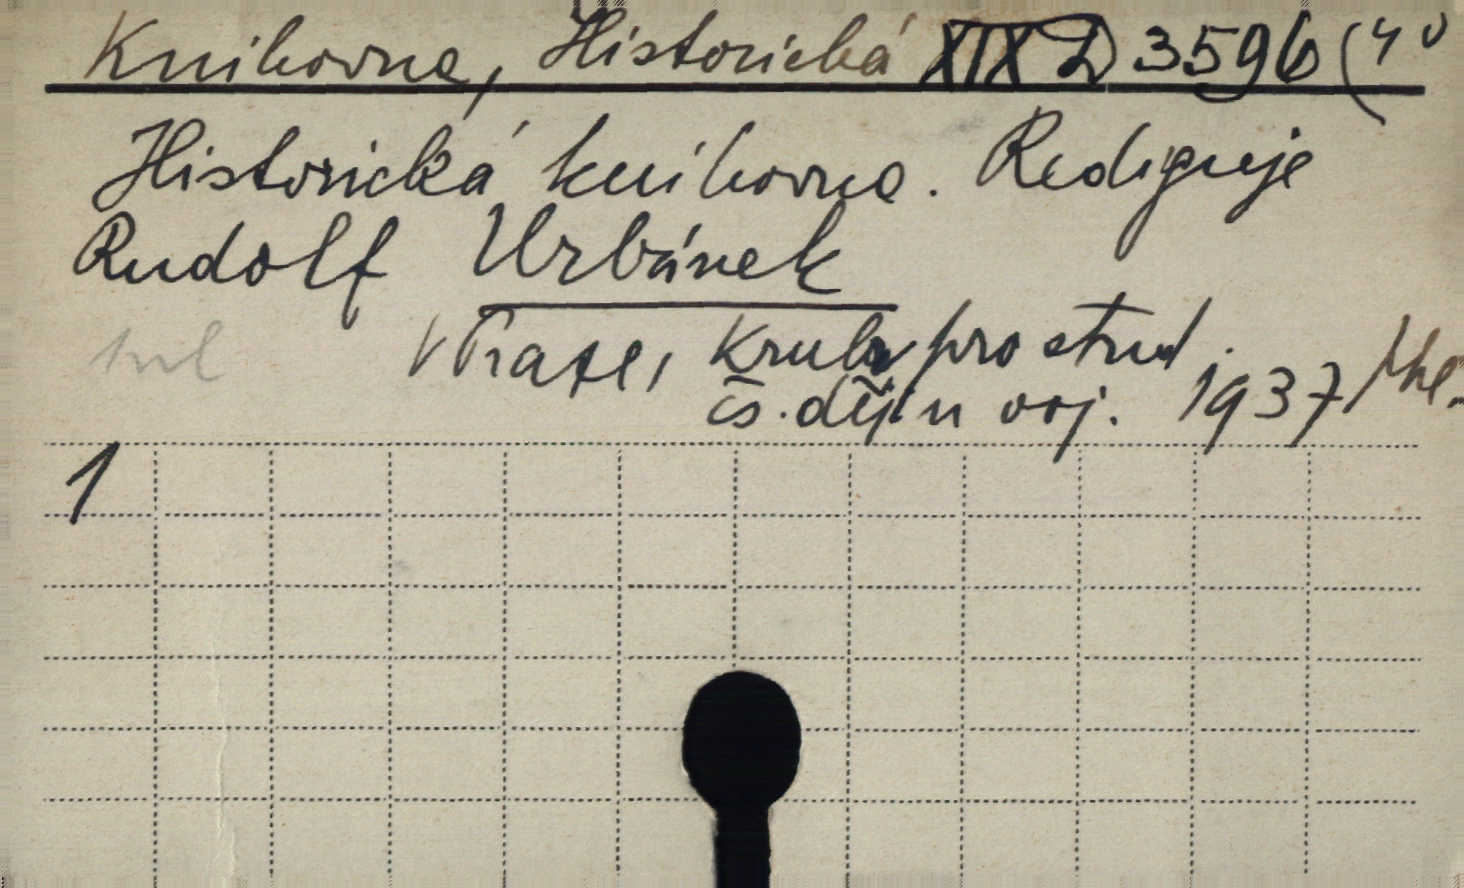 Knihovna, Historická XIX D 3596 (4°
Historická knihovna. Rediguje
Rudolf Urbánek
V Praze, Kruh pro stud.
čs. dějin voj. 1937
1